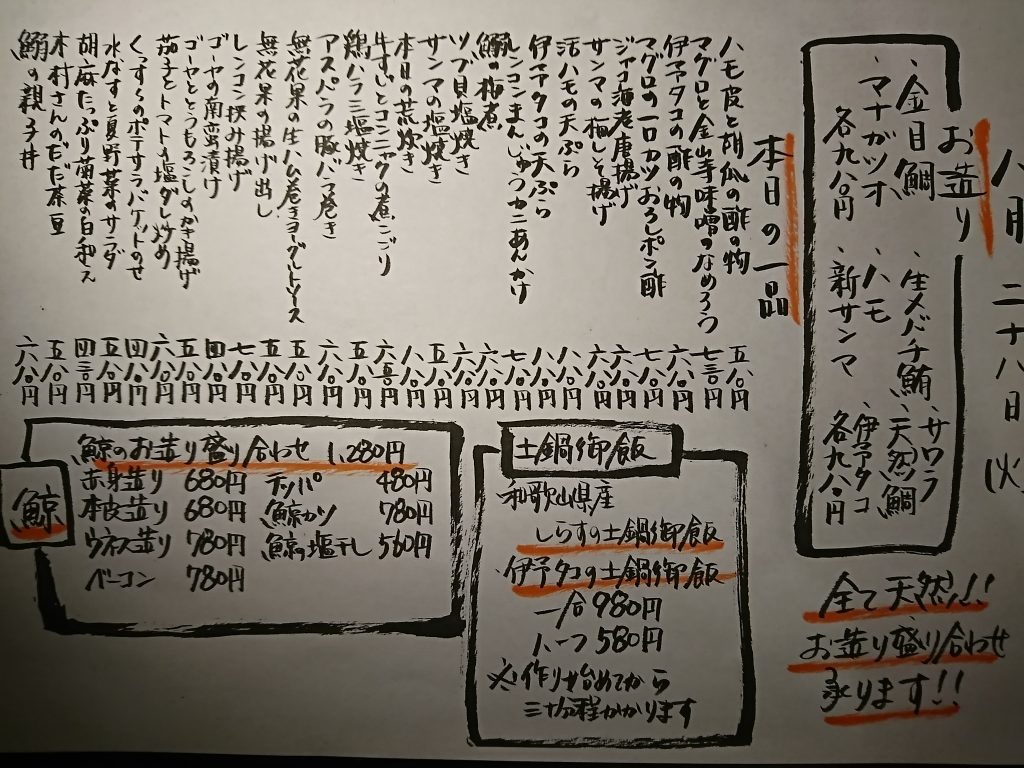 八月二十八日(火)
お造り
・金目鯛 ・生メバチ鮪 ・サワラ
・天然鯛
・マナガツオ ・ハモ ・伊予タコ
各九八〇円 新サンマ 各九八〇円
全て天然!!
お造り盛り合わせ
承ります!!
本日の一品
ハモ皮と胡瓜の酢の物 五八〇円
マグロと金山寺味噌のなめろう 七三〇円
伊予タコの酢の物 六八〇円
マグロの一口カツおろしポン酢 七八〇円
ジャコ海老唐揚げ 六八〇円
サンマの梅しそ揚げ 六八〇円
活ハモの天ぷら 八八〇円
伊予タコの天ぷら 八八〇円
レンコンまんじゅうカニあんかけ 七八〇円
鰯の梅煮 六八〇円
ツブ貝塩焼き 六八〇円
サンマの塩焼き 五八〇円
本日の荒炊き 八八〇円
牛すじとコンニャクの煮こごり 六五〇円
鶏ハラミ塩焼き 五八〇円
アスパラの豚バラ巻き 六八〇円
無花果の生ハム巻きヨーグルトソース 五八〇円
無花果の揚げ出し 五八〇円
レンコン挟み揚げ 七八〇円
ゴーヤの南蛮漬け 四八〇円
ゴーヤととうもろこしのかき揚げ 五八〇円
茄子とトマトの塩ダレ炒め 六八〇円
ポテサラバケットのせ 四八〇円
水なすと夏野菜のサラダ 五八〇円
胡麻たっぷり菊菜の白和え 四三〇円
木村さんのだだ茶豆 五八〇円
鰯の親子丼 六八〇円
土鍋御飯
和歌山県産
しらすの土鍋御飯
・伊予タコの土鍋御飯
一合 980円
ハーフ 580円
※作り始めてから
三十分程かかります
鯨
鯨のお造り盛り合わせ 1,280円
赤身造り 680円 チノパ 480円
本皮造り 680円 鯨カツ 780円
ウネス造り 780円 鯨の塩干し 560円
ベーコン 780円